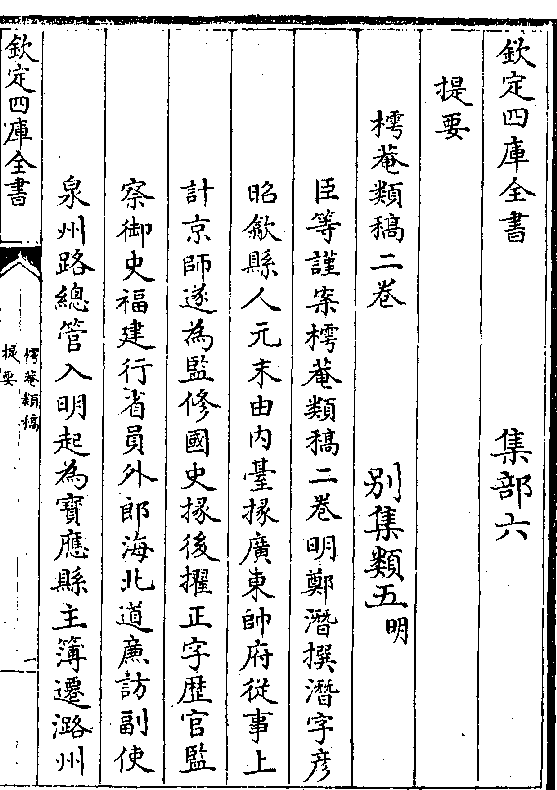 欽定四庫全書　　　　　集部六
提要
樗菴類稿二卷　　　　別集類五明
臣等謹案樗菴類稿二卷明鄭潛撰潛字彦
昭歙縣人元末由内臺掾廣東帥府從事上
計京師遂為監修國史掾後擢正字歴官監
察御史福建行省員外郎海北道廉訪副使
泉州路總管入明起為寶應縣主簿遷潞州
欽定四庫全書
樗菴類稿
提要
一